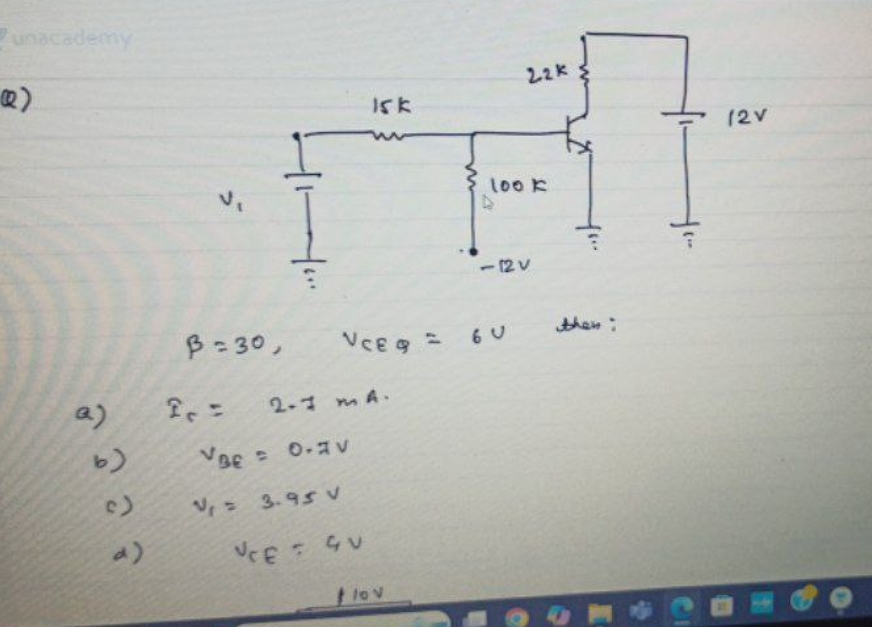 unacademy
Q)
22K
15K
12V
V₁
100K
-12V
β = 30, VCEQ = 6V then:
a) Ic = 2.7 mA.
b) VBE = 0.7V
c) V₁ = 3.95V
d) VCE = 4V
10V